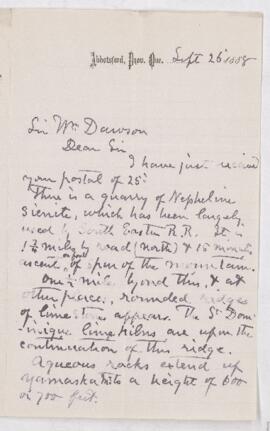 Abbotsford, Prov. Que. Sept 26 1888
Sir Wm Dawson
Dear Sir
I have just received
your postal of 25.
There is a quarry of Nepheline
Sienite, which has been largely
used by South Easter R.R. It is
1½ mile by road (north) & 15 minutes
ascent, on foot of spur of the mountain.
One ½ mile beyond this, & at
other places, rounded ridges
of limestone appears. The St Dom
inique lime kilns are upon the
continuation of this ridge.
Aqueous rocks extend up
Yamaska to a height of 600
or 700 feet.